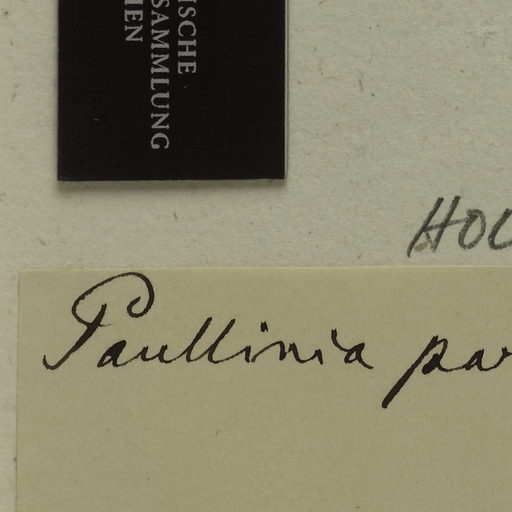 ISCHE
SAMMLUNG
HEN
HOL
Paullinia par